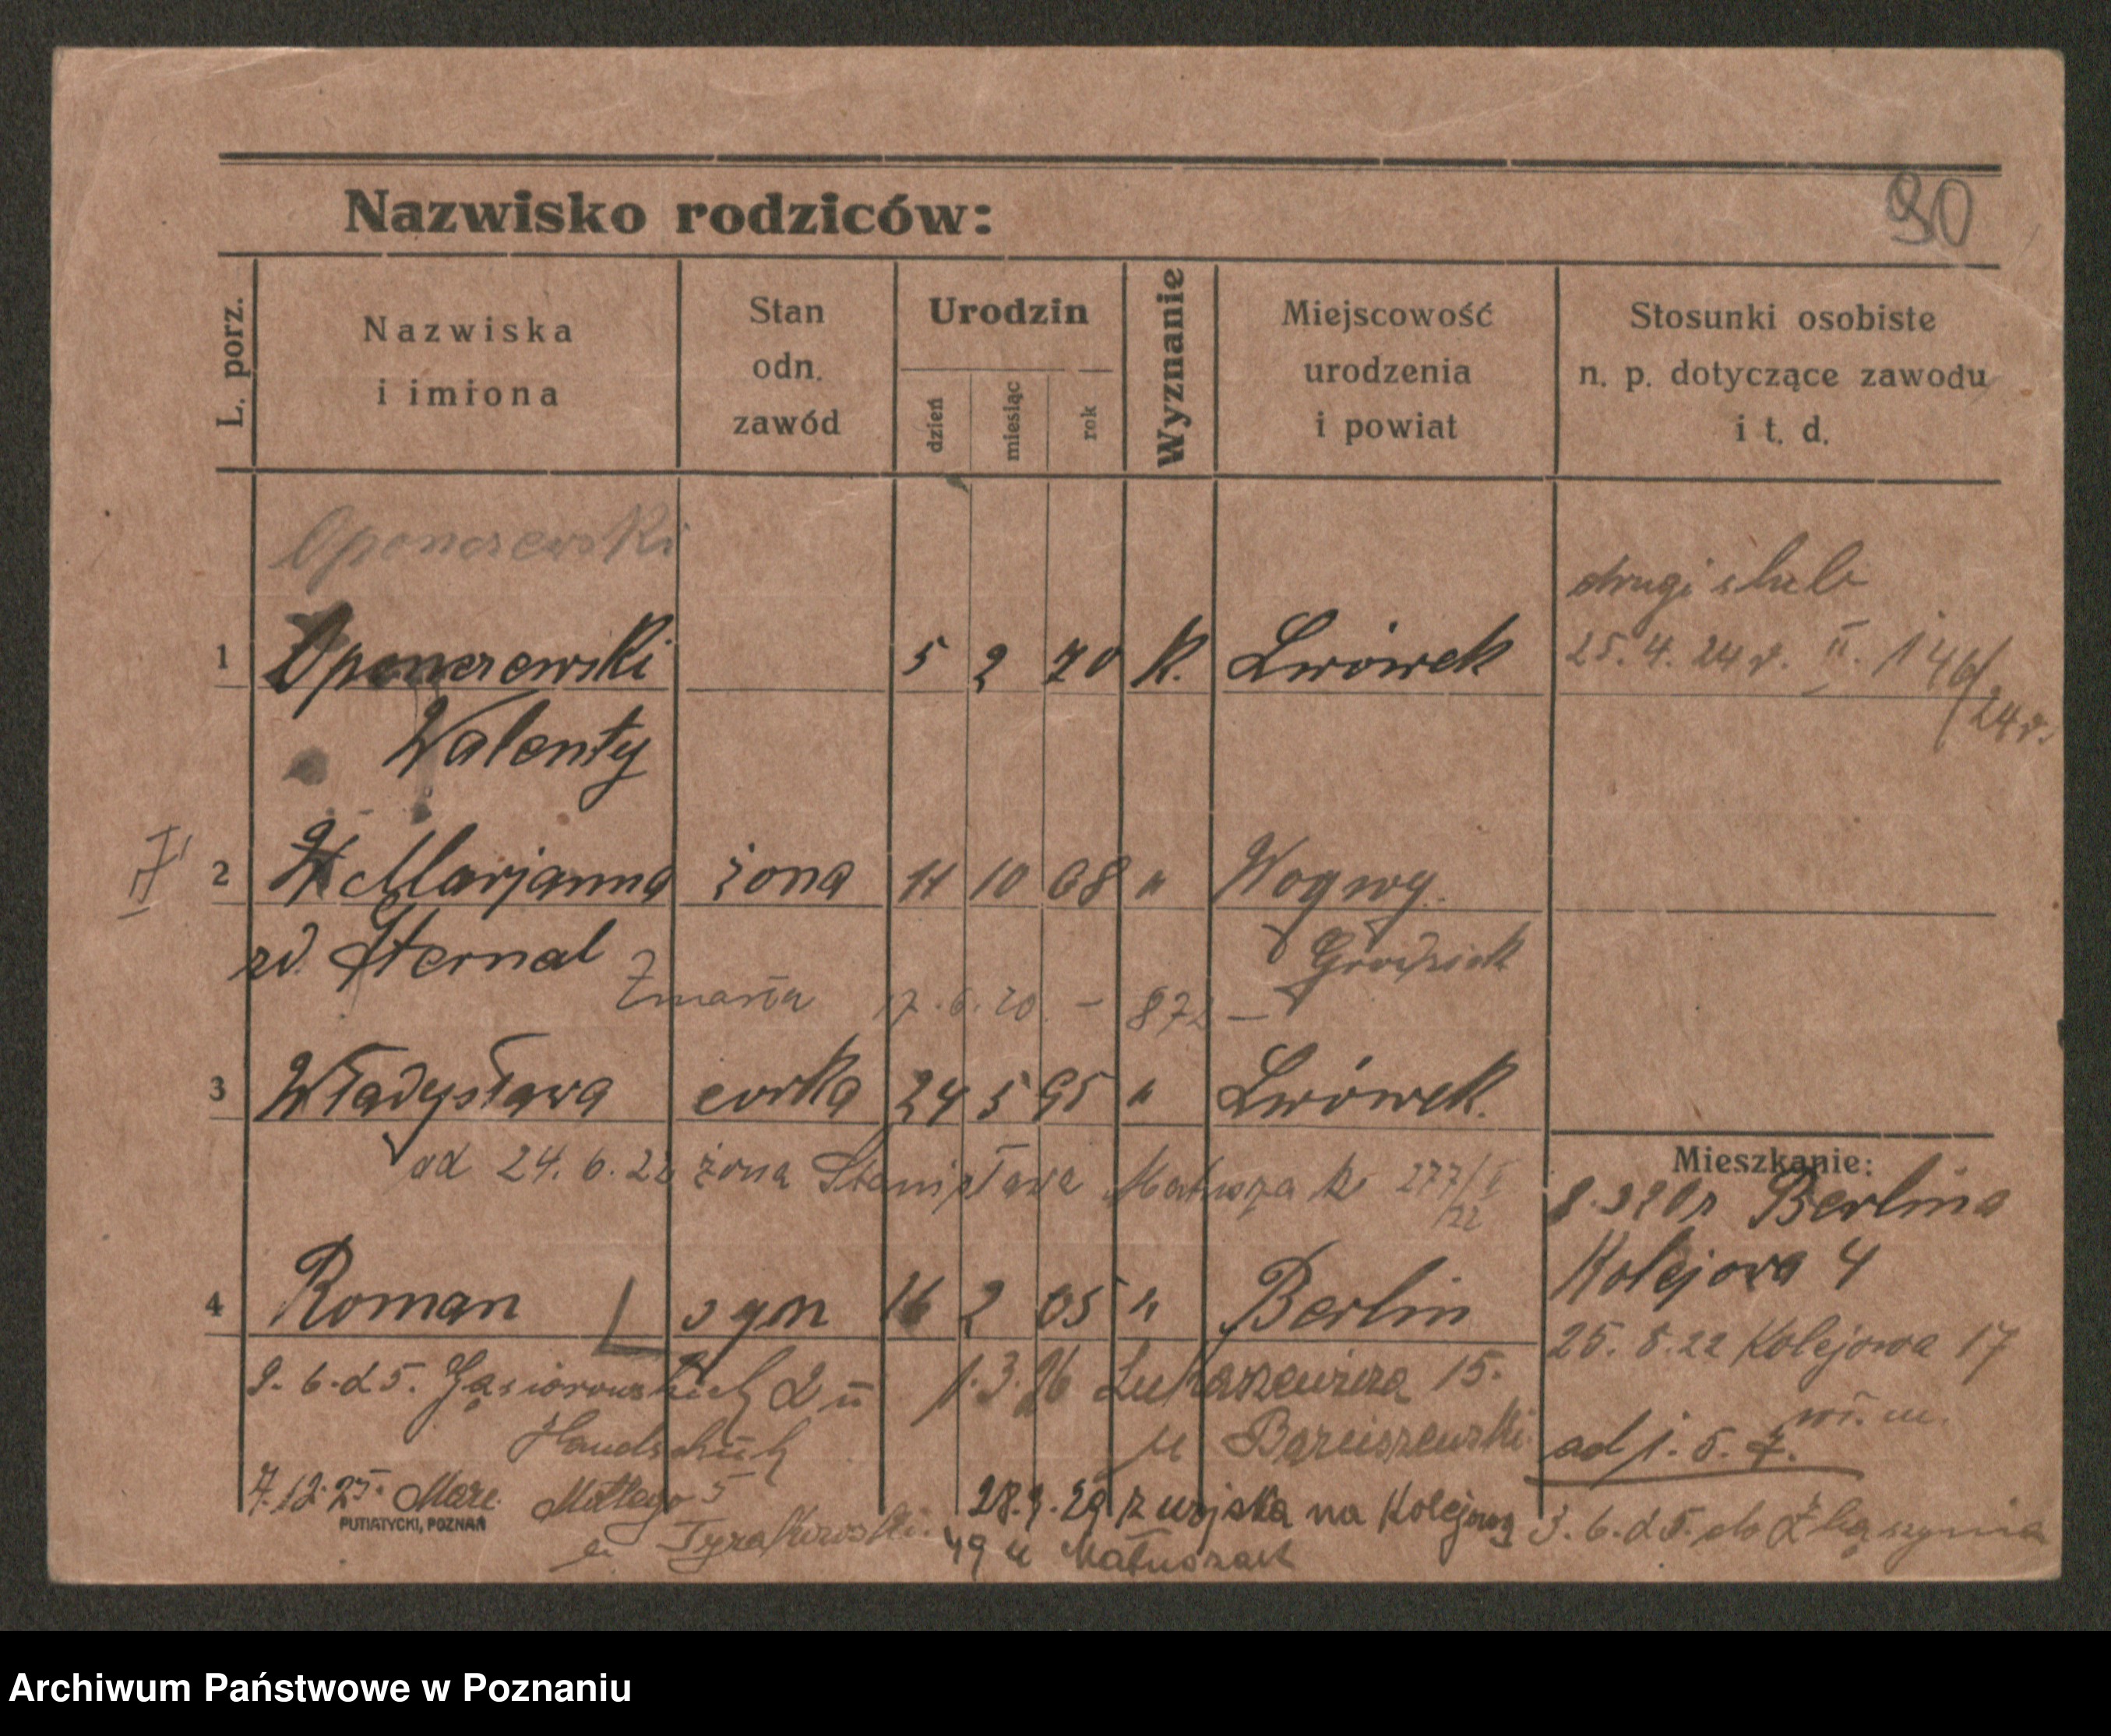 90
Nazwisko rodziców:
L. porz.
Nazwiska
i imiona
Stan
odn.
zawód
Urodzin
dzień
miesiąc
rok
Wyznanie
Miejscowość
urodzenia
i powiat
Stosunki osobiste
n. p. dotyczące zawodu
i t. d.
Oponczewski
drugi ślub
25. 4. 24 r. II. 146/24 r.
1 Oponczewski 5 2 70 k. Lwówek
Walenty
2 Marjanna żona 11 10 68 " 
zd. Sternal
Grodzisk
Zmarła 17. 6. 20. – 872 –
3 Władysława corka 24 5 95 " Lwówek.
od 24. 6. 22 żona Stanisława Matusza k. 277/II 22
Mieszkanie:
Berlina
Kolejowa 4
4 Roman syn 16 2 05 " Berlin
25. 8. 22 Kolejowa 17
9. 6. 25. Gąsiorowskich 2 II
1. 3. 26 Łukaszewicza 15.
Handschuh
u
7. 12. 25. Marc. Mottego 5
u Tyrakowski.
28. 9. 29 z wojska na Kolejową
49 u Matuszak
3. 6. 25. do Zbąszynia
PUTIATYCKI, POZNAŃ
Archiwum Państwowe w Poznaniu